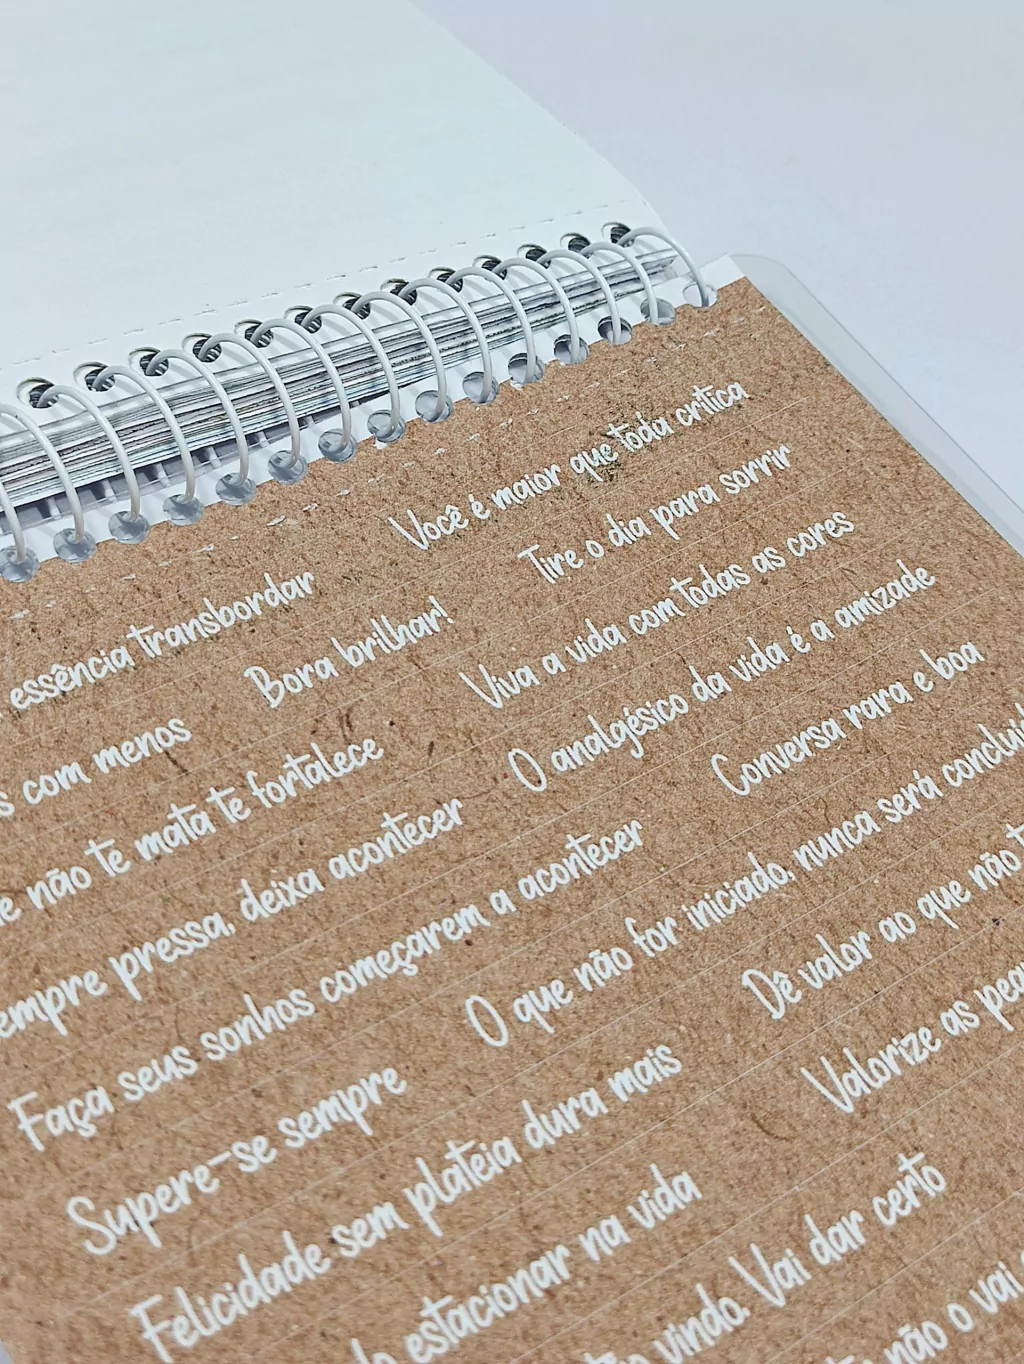 Você é maior que toda crítica
essência transbordar
Tire o dia para sorrir
Bora brilhar!
Viva a vida com todas as cores
com menos
O analgésico da vida é a amizade
não te mata te fortalece
Conversa rara e boa
pressa, deixa acontecer
O que não for iniciado, nunca será
Faça seus sonhos começarem a acontecer
Dê valor ao que não
Supere-se sempre
Valorize as
Felicidade sem plateia dura mais
estacionar na vida
vindo. Vai dar certo
não o vai